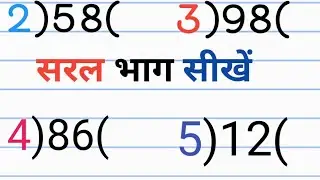 2)58( 3)98(
सरल भाग सीखें
4)86( 5)12(